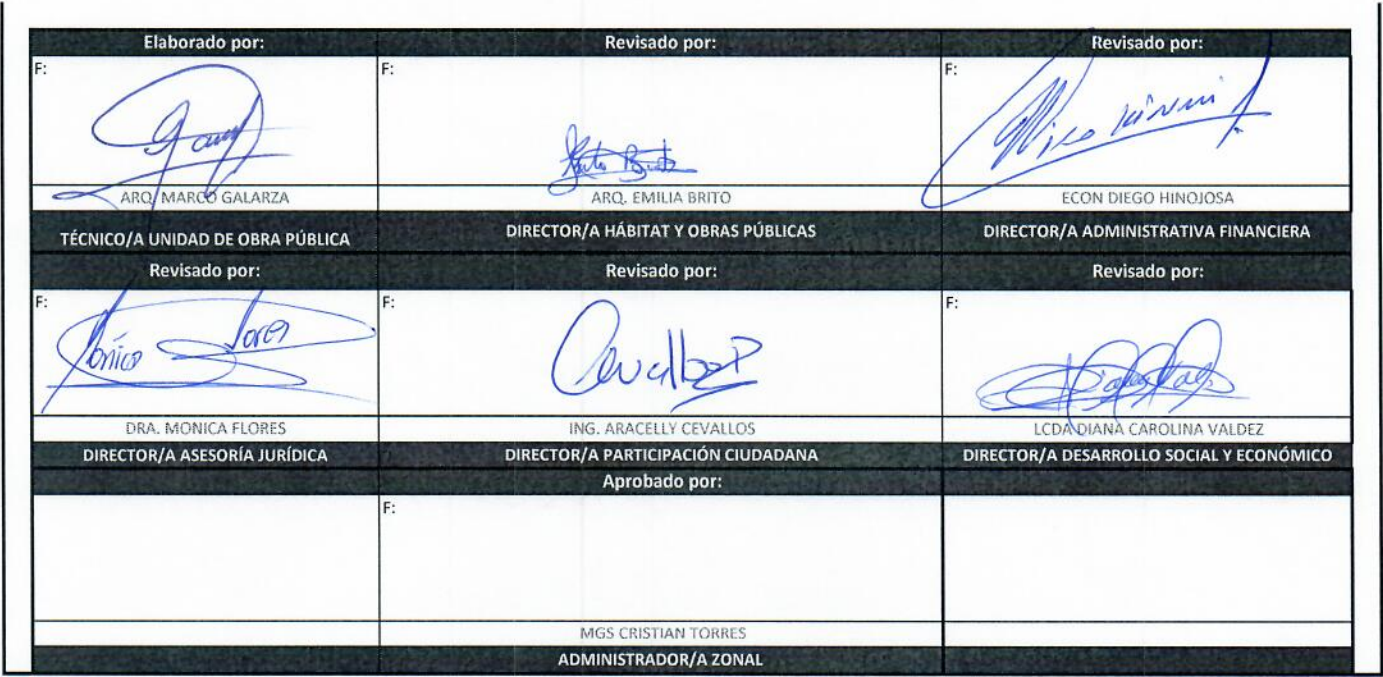 Elaborado por:
Revisado por:
Revisado por:
F:
F:
F:
ARQ. MARCO GALARZA
ARQ. EMILIA BRITO
ECON DIEGO HINOJOSA
TÉCNICO/A UNIDAD DE OBRA PÚBLICA
DIRECTOR/A HÁBITAT Y OBRAS PÚBLICAS
DIRECTOR/A ADMINISTRATIVA FINANCIERA
Revisado por:
Revisado por:
Revisado por:
F:
F:
F:
DRA. MONICA FLORES
ING. ARACELLY CEVALLOS
LCDA DIANA CAROLINA VALDEZ
DIRECTOR/A ASESORÍA JURÍDICA
DIRECTOR/A PARTICIPACIÓN CIUDADANA
DIRECTOR/A DESARROLLO SOCIAL Y ECONÓMICO
Aprobado por:
F:
MGS CRISTIAN TORRES
ADMINISTRADOR/A ZONAL